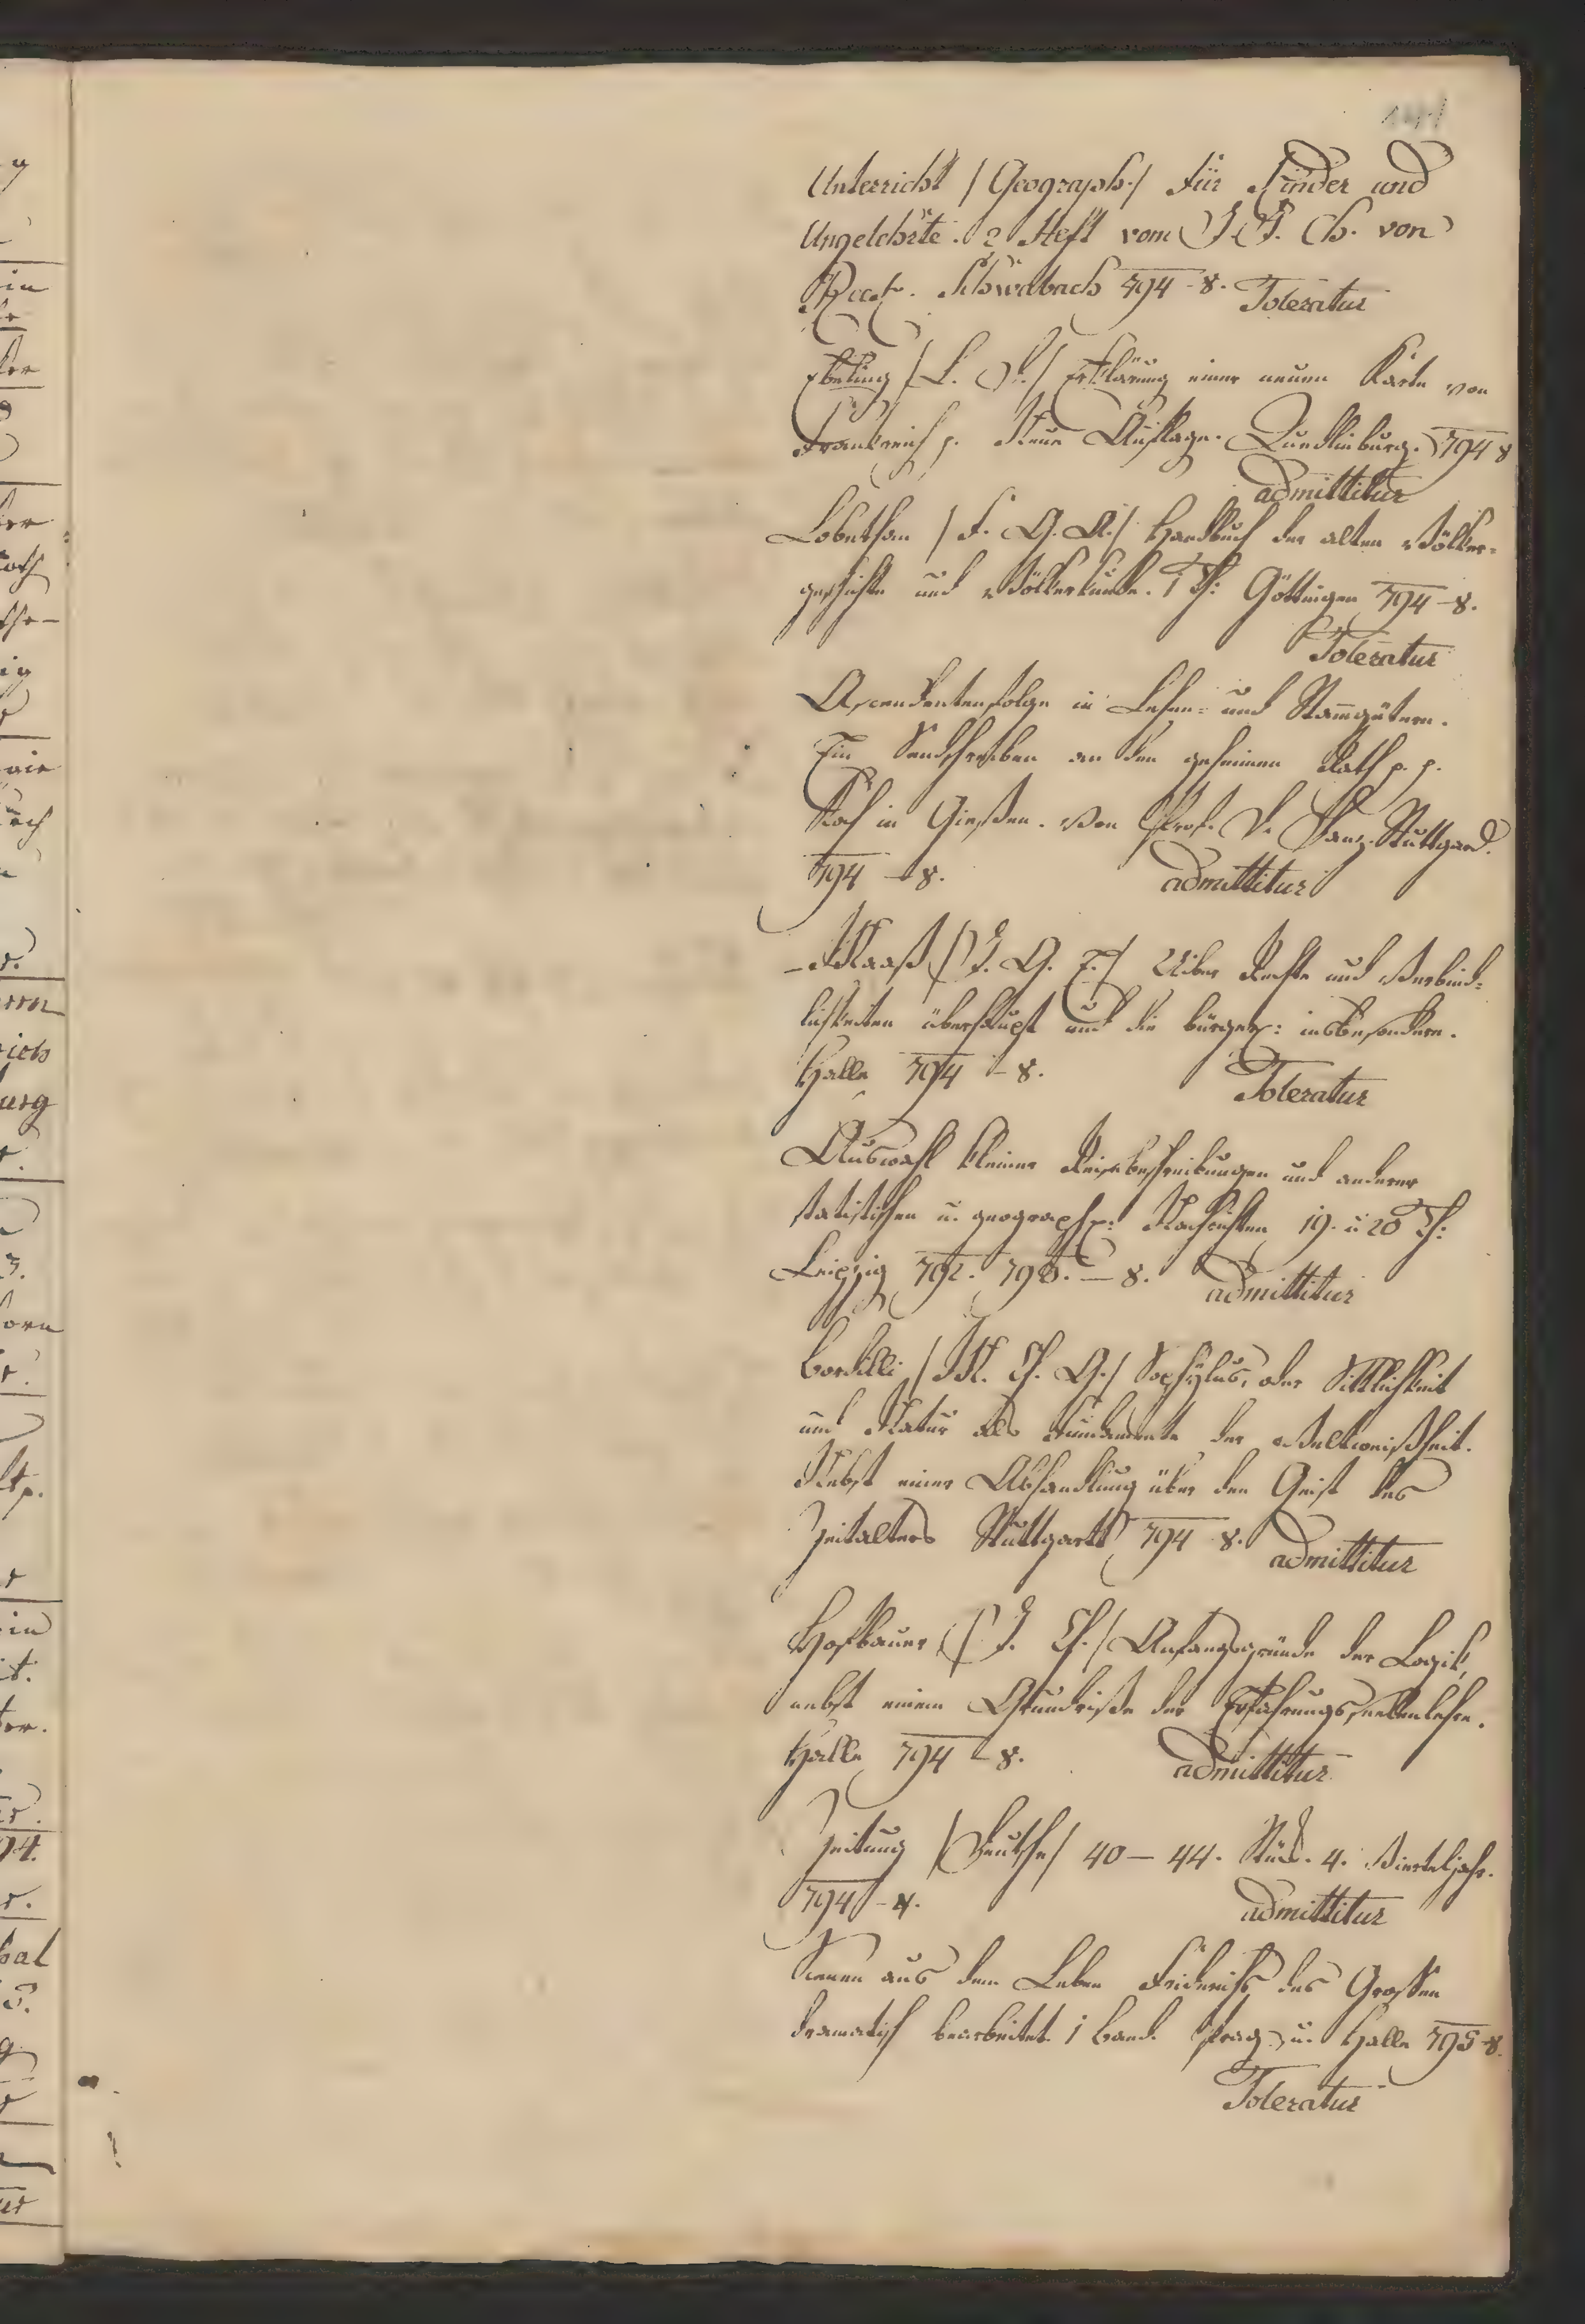 141
Unterricht /Geograph./ für Kinder und
Ungelehrte. 2 Heft vom J. F. Ch. von
Schwabach 794 - 8. Toleratur
Ebeling / Erklärung einer neuen Karte von
Frankreich p. Neue Auflage. Quedlinburg. 794 8
admittitur
Lobethan /F. G. A./ Handbuch der alten Völker=
geschichte und Völkerkunde. 1 Th: Göttingen 794 - 8.
Toleratur
Ascendentenfolge in Lehen= und Stammgütern.
Ein Sendschreiben an den geheimen Rath p. p.
Koch in Gießen. Von Prof. D. Danz. Stuttgard.
794 - 8. admittitur
Maaß /J. G. E./ Uiber Rechte und Verbind=
lichkeiten überhaupt und die bürgerl: insbesondere.
Halle 794 - 8. Toleratur
Auswahl kleiner Reisebeschreibungen und anderer
statistischen u. geograph: Nachrichten 19. u 20 Th:
Leipzig 792. 793. - 8. admittitur
Bardili /M. Ch. G./ Sophylus, oder Sittlichkeit
und Natur als Fundamente der Weltweißheit.
Nebst einer Abhandlung über den Geist des
Zeitalters Stuttgartt 794 8. admittitur
Hofbauer /J. Ch./ Anfangsgründe der Logik,
nebst einem Grundriße der Erfahrungsseelenlehre.
Halle 794 - 8. admittitur
Zeitung /Deutsche/ 40 - 44. Stück. 4. Vierteljahr.
794 - 4. admittitur
Scenen aus dem Leben Friderichs des Grossen
dramatisch bearbeitet 1 Band. Prag u. Halle 795 - 8.
Toleratur